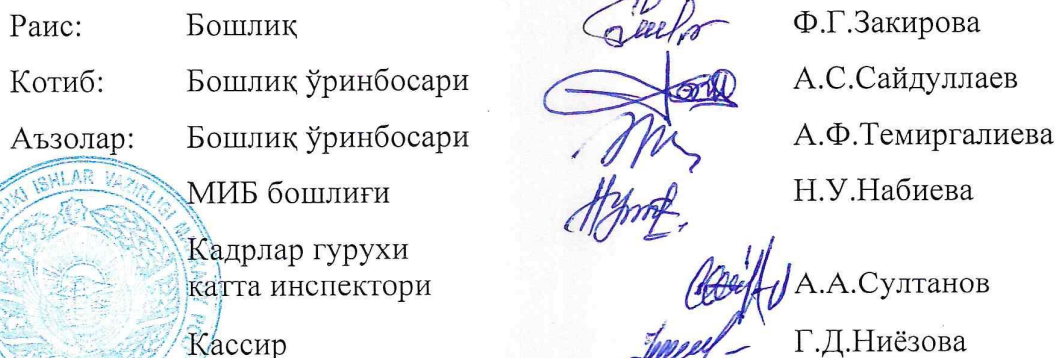 Раис: Бошлиқ Ф.Г.Закирова
Котиб: Бошлиқ ўринбосари А.С.Сайдуллаев
Аъзолар: Бошлиқ ўринбосари А.Ф.Темиргалиева
МИБ бошлиғи Н.У.Набиева
Кадрлар гурухи
катта инспектори А.А.Султанов
Кассир Г.Д.Ниёзова
ISHLAR VAZIRLIGI